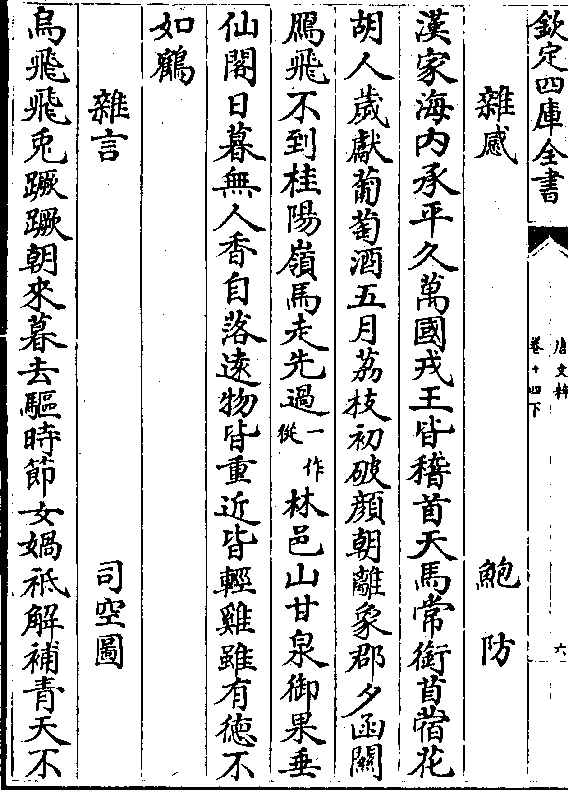 欽定四庫全書
唐文粹
卷十四下
六
雜感 鮑防
漢家海內承平久萬國戎王皆稽首天馬常銜苜蓿花
胡人歲獻葡萄酒五月荔枝初破顔朝離象郡夕函關
鴈飛不到桂陽嶺馬走先過一作從林邑山甘泉御果垂
仙閣日暮無人香自落逺物皆重近皆輕雞雖有德不
如鶴
雜言 司空圖
烏飛飛兎蹶蹶朝來暮去驅時節女媧祇解補青天不